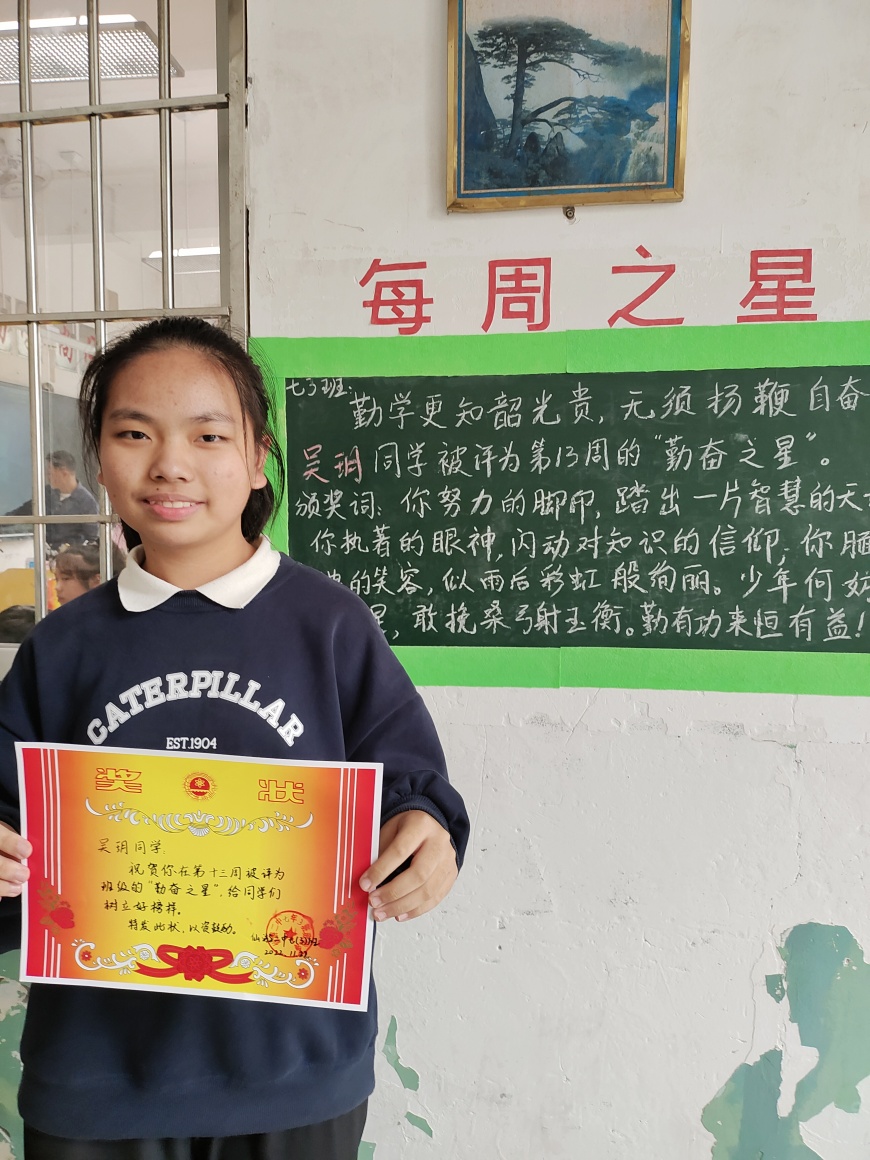 每周之星
七3班:
勤学更知韶光贵,无须扬鞭自奋
吴玥同学被评为第13周的“勤奋之星”。
颁奖词:你努力的脚印,踏出一片智慧的天
你执著的眼神,闪动对知识的信仰;你
的笑容,似雨后彩虹般绚丽。少年何妨
,敢挽桑弓射玉衡。勤有功来恒有益!
CATERPILLAR
EST.1904
奖状
吴玥同学:
祝贺你在第十三周被评为
班级的“勤奋之星”,给同学们
树立好榜样。
特发此状,以资鼓励。
中七(3)班
2022.11.29